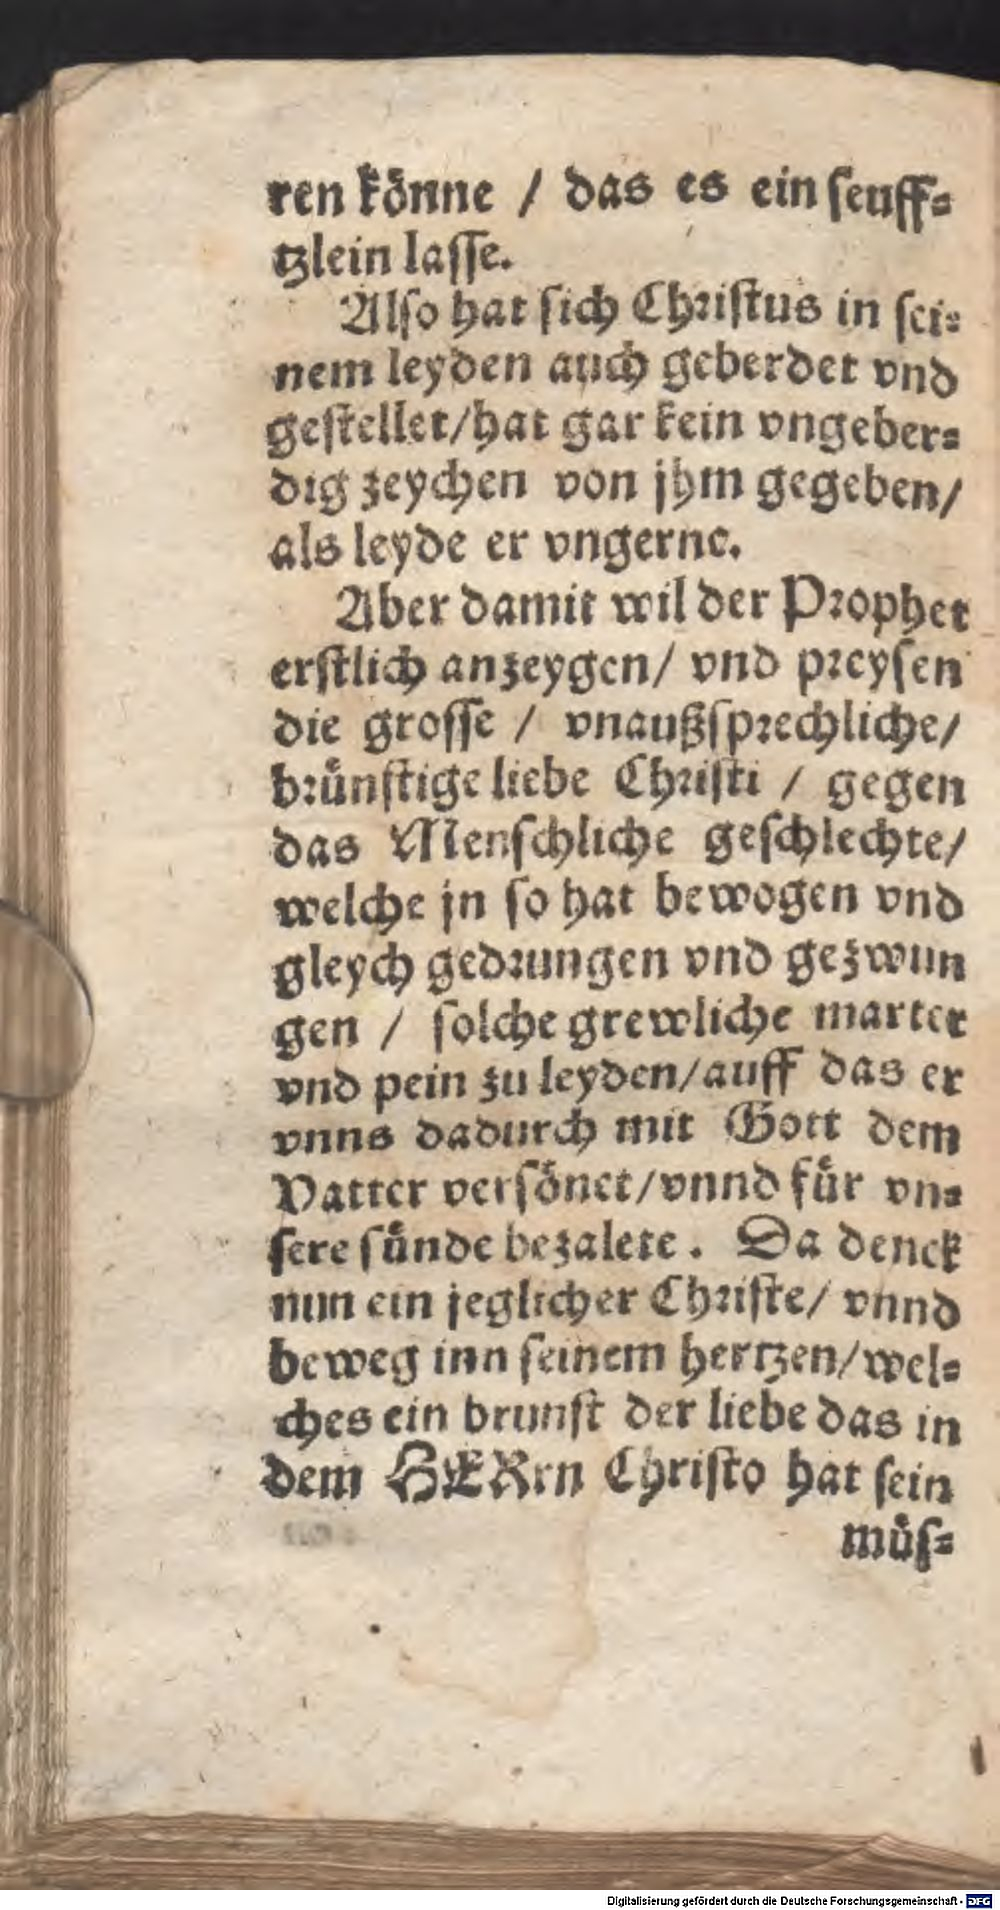 ren könne / das es ein seuff⸗
tzlein lasse.
Also hat sich Christus in sei⸗
nem leyden auch geberdet vnd
gestellet/hat gar kein vngeber⸗
dig zeychen von jhm gegeben/
als leyde er vngerne.
Aber damit wil der Prophet
erstlich anzeygen/ vnd preysen
die grosse / vnaußsprechliche/
brünstige liebe Christi / gegen
das Menschliche geschlechte/
welche jn so hat bewogen vnd
gleych gedrungen vnd gezwun
gen / solche grewliche marter
vnd pein zu leyden/auff das er
vnns dadurch mit Gott dem
Vatter versönet/vnnd für vn⸗
sere sünde bezalete. Da denck
nun ein jeglicher Christe/ vnnd
beweg inn seinem hertzen/wel⸗
ches ein brunst der liebe das in
dem HERrn Christo hat sein
müs⸗
Digitalisierung gefördert durch die Deutsche Forschungsgemeinschaft - DFG